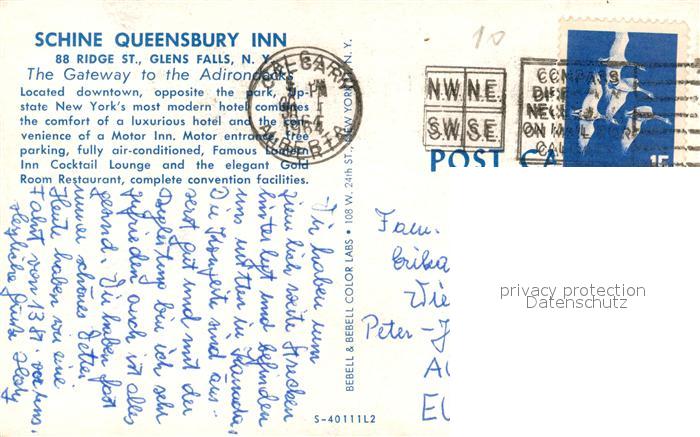 SCHINE QUEENSBURY INN
88 RIDGE ST., GLENS FALLS, N. Y.
The Gateway to the Adirondacks
Located downtown, opposite the park, Up-
state New York's most modern hotel combines
the comfort of a luxurious hotel and the con-
venience of a Motor Inn. Motor entrance, free
parking, fully air-conditioned, Famous
Inn Cocktail Lounge and the elegant Gold
Room Restaurant, complete convention facilities.
CALGARY
PM
ALBERTA
10
N.W. N.E.
S.W. S.E.
COMPASS
ON MAIL FOR
15
POST CA
Wir haben nun
ziemlich weite Strecken
hinterlegt und befinden
uns mitten in Kanada.
Die Konzerte sind aus-
serst gut und mit der
Begleitung bin ich sehr
zufrieden auch ist alles
gesund. Wir haben fast
immer schönes Wetter
Heute haben wir eine
Fahrt von vor uns.
Herzliche Grüße
BEBELL & BEBELL COLOR LABS • 108 W. 24th ST., NEW YORK, N. Y.
S-40111L2
Fam.
Erika
Wie
Peter-J
A
EU
privacy protection
Datenschutz